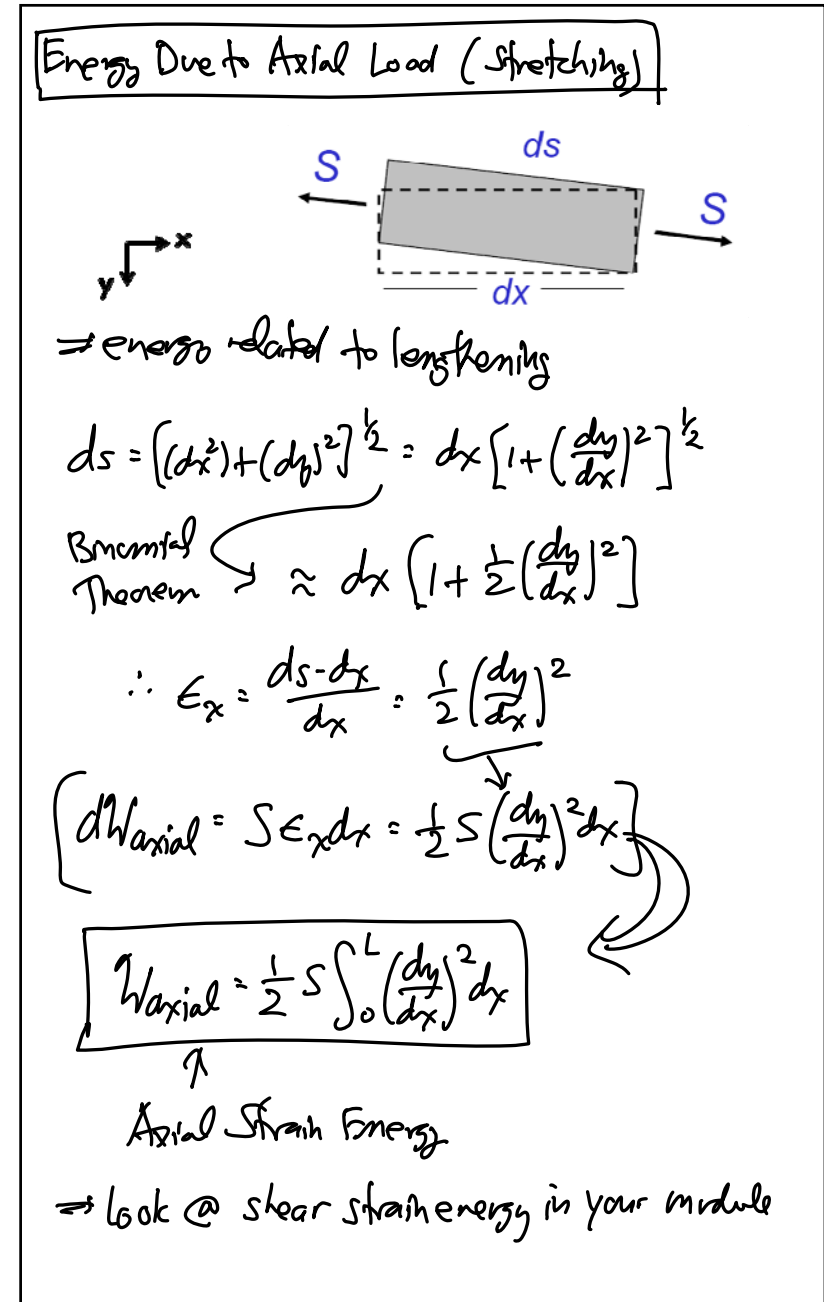 Energy Due to Axial Load (Stretching)
ds
S
S
x
y
dx
⇒ energy related to lengthening
ds = [(dx²)+(dy)²]^½ = dx [1+(dy/dx)²]^½
Binomial
Theorem ≈ dx [1+ ½(dy/dx)²]
∴ ϵₓ = (ds-dx)/dx = ½(dy/dx)²
[dWaxial = Sϵₓdx = ½S(dy/dx)²dx]
Waxial = ½S∫₀ᴸ(dy/dx)²dx
Axial Strain Energy
⇒ look @ shear strain energy in your module